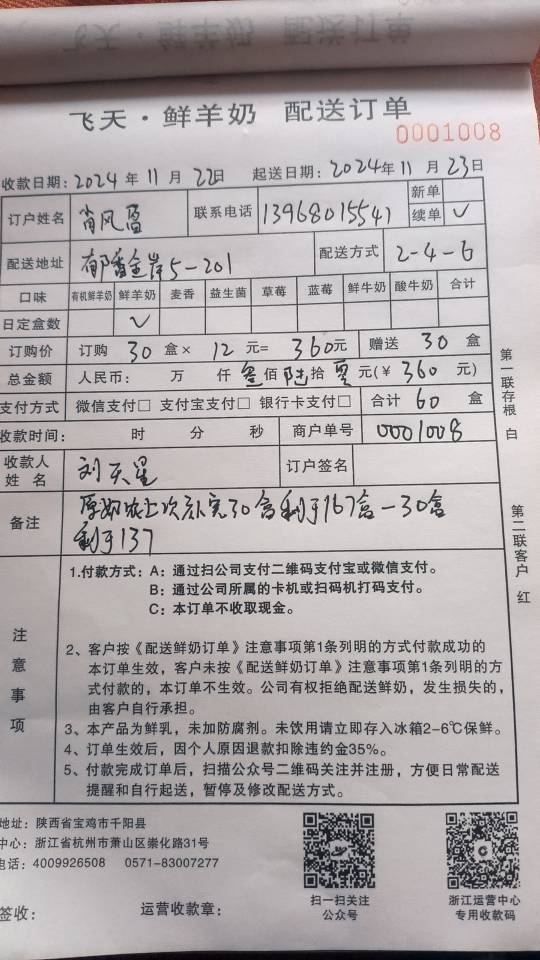 飞天·鲜羊奶 配送订单
0001008
收款日期：2024年11月22日 起送日期：2024年11月23日
订户姓名 肖风盈 联系电话 13968015541 新单
续单 ✓
配送地址 郁香金岸5-201 配送方式 2-4-6
口味 有机鲜羊奶 鲜羊奶 麦香 益生菌 草莓 蓝莓 鲜牛奶 酸牛奶 合计
日定盒数 ✓
订购价 订购 30 盒× 12 元= 360元 赠送 30 盒
总金额 人民币： 万 仟 叁佰 陆拾 零元(￥ 360 元)
支付方式 微信支付□ 支付宝支付□ 银行卡支付□ 合计 60 盒
收款时间： 时 分 秒 商户单号 0001008
收款人姓名 刘天星 订户签名
备注 原奶 上次 完30盒剩于167盒-30盒
剩于137
注意事项
1.付款方式：A：通过扫公司支付二维码支付宝或微信支付。
B：通过公司所属的卡机或扫码机打码支付。
C：本订单不收取现金。
2、客户按《配送鲜奶订单》注意事项第1条列明的方式付款成功的
本订单生效，客户未按《配送鲜奶订单》注意事项第1条列明的方
式付款的，本订单不生效。公司有权拒绝配送鲜奶，发生损失的，
由客户自行承担。
3、本产品为鲜乳，未加防腐剂。未饮用请立即存入冰箱2-6℃保鲜。
4、订单生效后，因个人原因退款扣除违约金35%。
5、付款完成订单后，扫描公众号二维码关注并注册，方便日常配送
提醒和自行起送，暂停及修改配送方式。
第一联存根 白
第二联客户 红
地址：陕西省宝鸡市千阳县
中心：浙江省杭州市萧山区崇化路31号
电话：4009926508 0571-83007277
扫一扫关注
公众号
浙江运营中心
专用收款码
签收： 运营收款章：